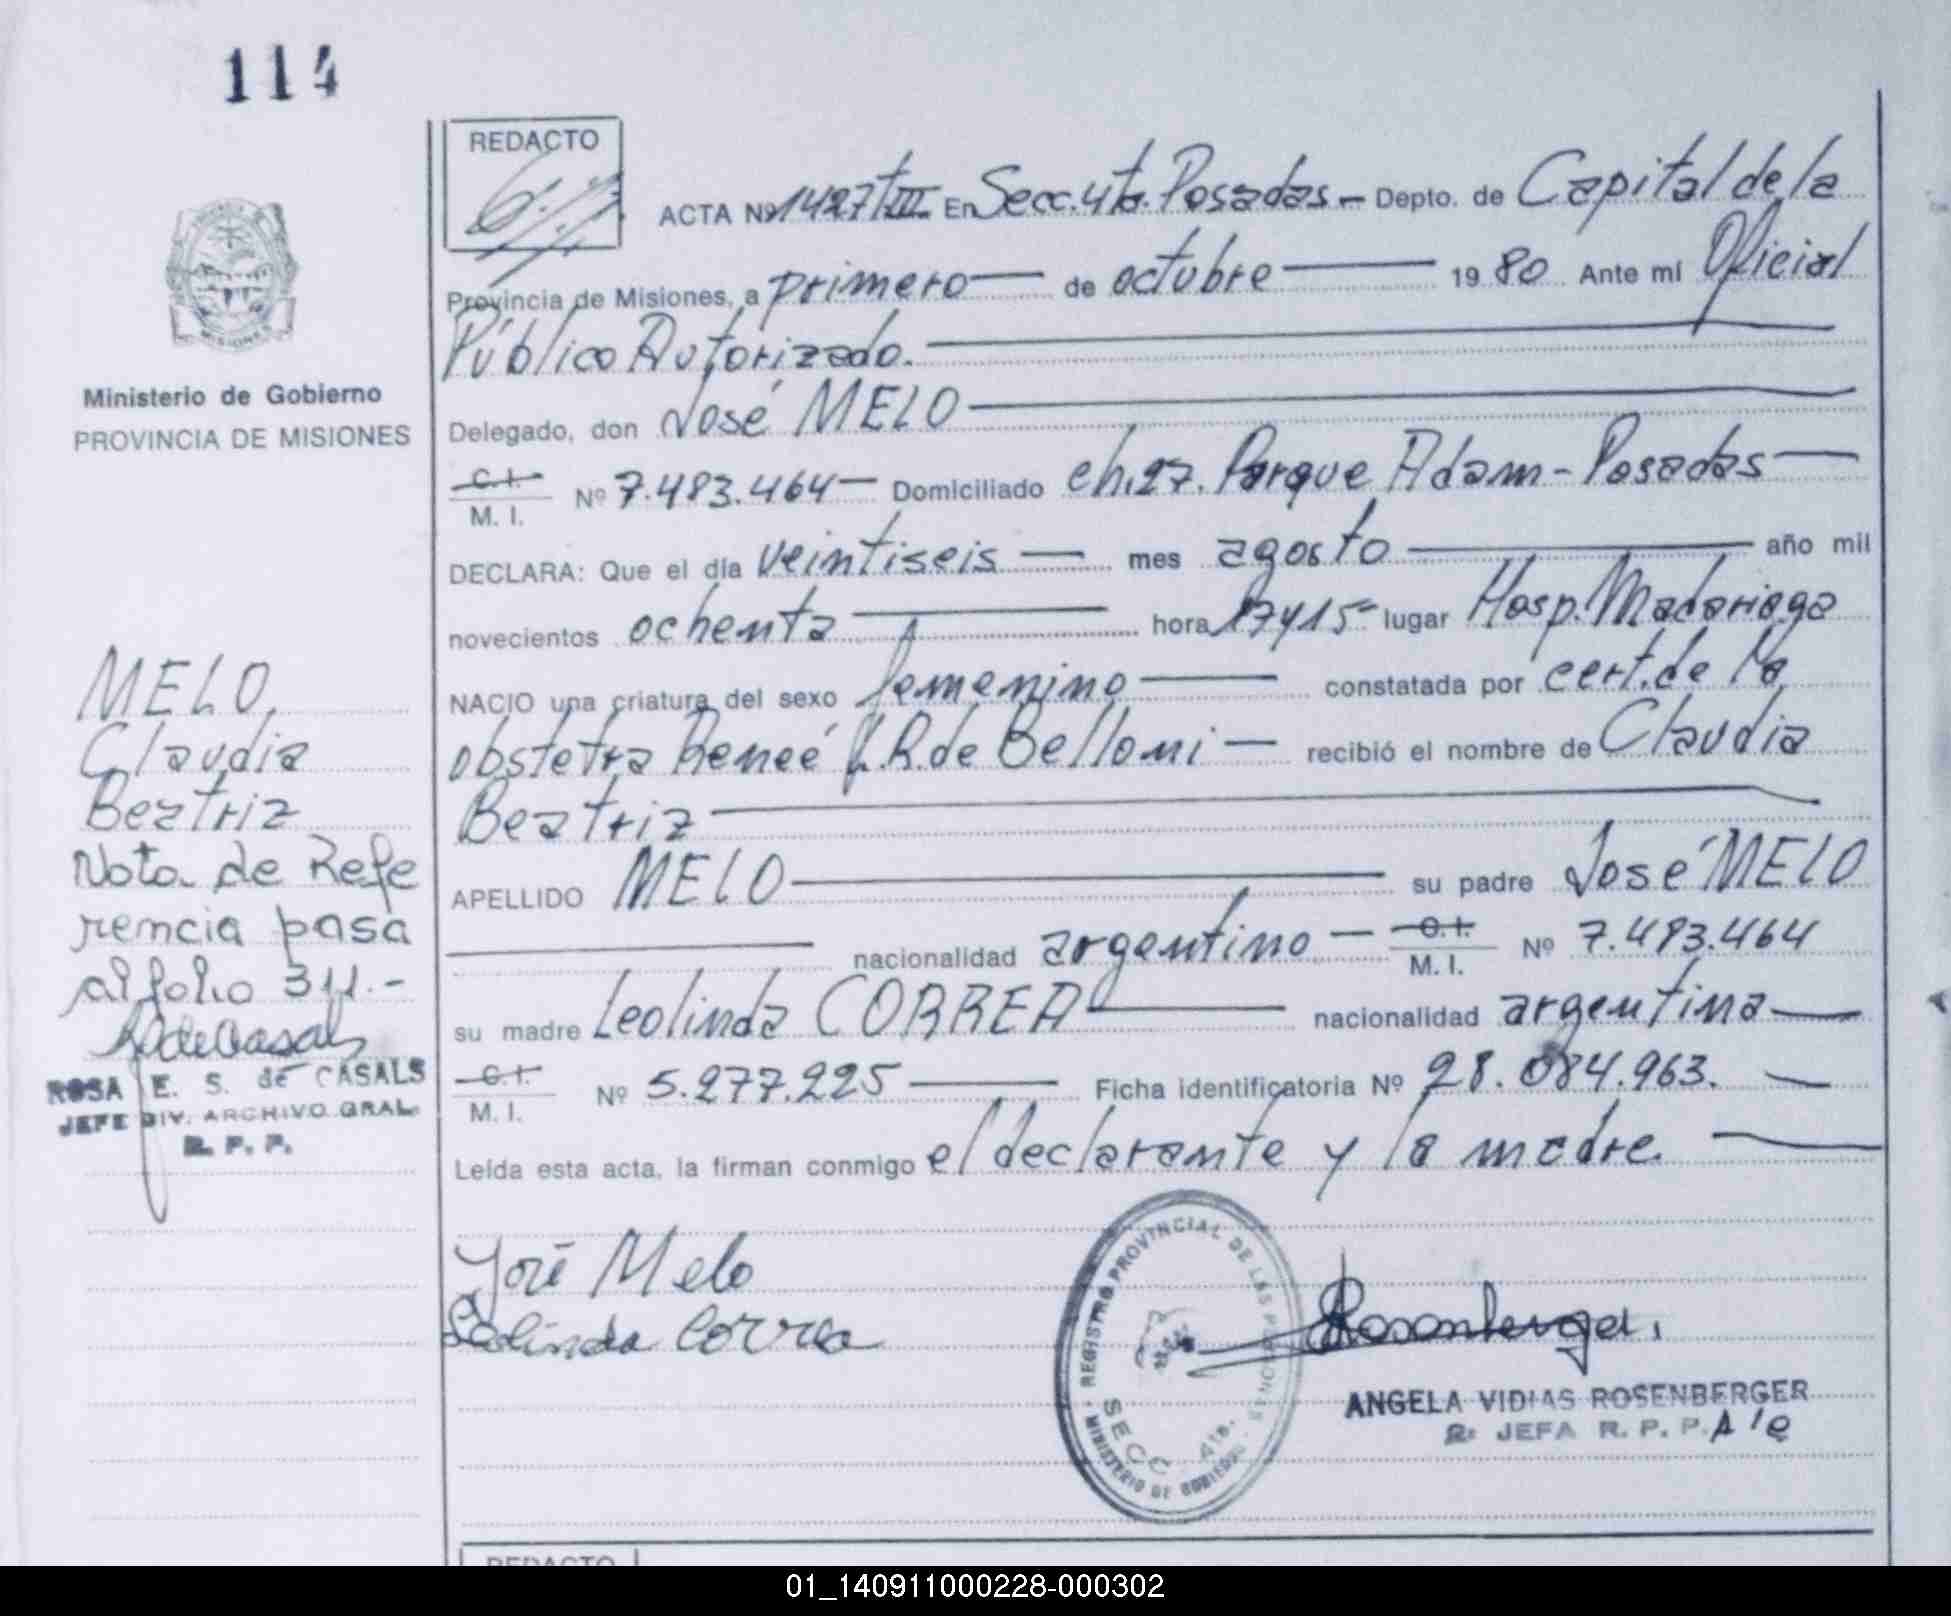 114
REDACTO
ACTA Nº 1427 TIII En Secc. 4ta. Posadas - Depto. de Capital de la
Provincia de Misiones, a primero de octubre 1980 Ante mí Oficial
Público Autorizado.
Delegado, don José MELO
C. I. M. I. Nº 7.483.464 Domiciliado ch. 27. Parque Adam - Posadas
DECLARA: Que el día veintiseis mes agosto año mil
novecientos ochenta hora 17 y 15 lugar Hosp. Madariaga
NACIO una criatura del sexo femenino constatada por cert. de la
obstetra Reneé R. de Belloni recibió el nombre de Claudia
Beatriz
APELLIDO MELO su padre José MELO
nacionalidad argentino C. I. M. I. Nº 7.483.464
su madre Leolinda CORREA nacionalidad argentina
C. I. M. I. Nº 5.277.225 Ficha identificatoria Nº 28.084.963.
Leída esta acta, la firman conmigo el declarante y la madre.
José Melo
Leolinda Correa
Rosenberger
ANGELA VIDIAS ROSENBERGER
2ª JEFA R. P. P. A/C
REGISTRO PROVINCIAL DE LAS PERSONAS
MINISTERIO DE GOBIERNO
SECC. 4ta.
MISIONES
Ministerio de Gobierno
PROVINCIA DE MISIONES
MELO,
Claudia
Beatriz
Nota de Refe
rencia pasa
al folio 311.-
R de Casals
ROSA E. S. de CASALS
JEFE DIV. ARCHIVO GRAL.
R. P. P.
REDACTO
01_140911000228-000302